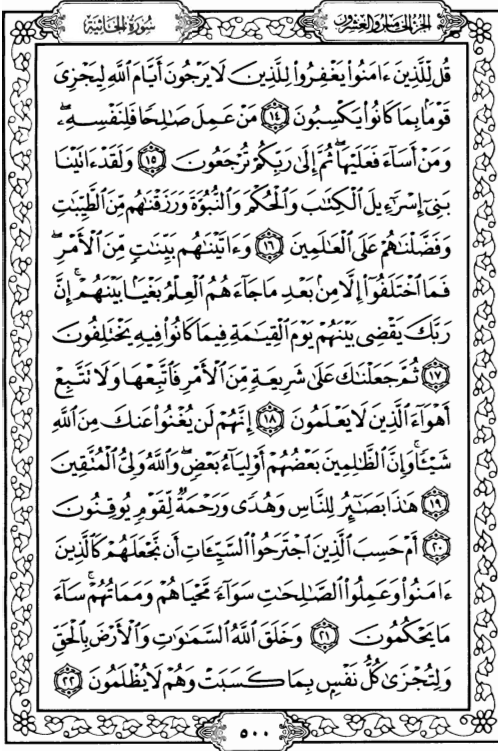 الجزء الخامس والعشرون
سورة الجاثية
قُل لِّلَّذِينَ ءَامَنُواْ يَغْفِرُواْ لِلَّذِينَ لَا يَرْجُونَ أَيَّامَ ٱللَّهِ لِيَجْزِىَ
قَوْمَۢا بِمَا كَانُواْ يَكْسِبُونَ ١٤ مَنْ عَمِلَ صَٰلِحًا فَلِنَفْسِهِۦۖ
وَمَنْ أَسَآءَ فَعَلَيْهَاۖ ثُمَّ إِلَىٰ رَبِّكُمْ تُرْجَعُونَ ١٥ وَلَقَدْ ءَاتَيْنَا
بَنِىٓ إِسْرَٰٓءِيلَ ٱلْكِتَٰبَ وَٱلْحُكْمَ وَٱلنُّبُوَّةَ وَرَزَقْنَٰهُم مِّنَ ٱلطَّيِّبَٰتِ
وَفَضَّلْنَٰهُمْ عَلَى ٱلْعَٰلَمِينَ ١٦ وَءَاتَيْنَٰهُم بَيِّنَٰتٍ مِّنَ ٱلْأَمْرِۖ
فَمَا ٱخْتَلَفُوٓاْ إِلَّا مِنۢ بَعْدِ مَا جَآءَهُمُ ٱلْعِلْمُ بَغْيَۢا بَيْنَهُمْۚ إِنَّ
رَبَّكَ يَقْضِى بَيْنَهُمْ يَوْمَ ٱلْقِيَٰمَةِ فِيمَا كَانُواْ فِيهِ يَخْتَلِفُونَ
١٧ ثُمَّ جَعَلْنَٰكَ عَلَىٰ شَرِيعَةٍ مِّنَ ٱلْأَمْرِ فَٱتَّبِعْهَا وَلَا تَتَّبِعْ
أَهْوَآءَ ٱلَّذِينَ لَا يَعْلَمُونَ ١٨ إِنَّهُمْ لَن يُغْنُواْ عَنكَ مِنَ ٱللَّهِ
شَيْـًٔاۚ وَإِنَّ ٱلظَّٰلِمِينَ بَعْضُهُمْ أَوْلِيَآءُ بَعْضٍۖ وَٱللَّهُ وَلِىُّ ٱلْمُتَّقِينَ
١٩ هَٰذَا بَصَٰٓئِرُ لِلنَّاسِ وَهُدًى وَرَحْمَةٌ لِّقَوْمٍ يُوقِنُونَ
٢٠ أَمْ حَسِبَ ٱلَّذِينَ ٱجْتَرَحُواْ ٱلسَّيِّـَٔاتِ أَن نَّجْعَلَهُمْ كَٱلَّذِينَ
ءَامَنُواْ وَعَمِلُواْ ٱلصَّٰلِحَٰتِ سَوَآءً مَّحْيَاهُمْ وَمَمَاتُهُمْۚ سَآءَ
مَا يَحْكُمُونَ ٢١ وَخَلَقَ ٱللَّهُ ٱلسَّمَٰوَٰتِ وَٱلْأَرْضَ بِٱلْحَقِّ
وَلِتُجْزَىٰ كُلُّ نَفْسٍۭ بِمَا كَسَبَتْ وَهُمْ لَا يُظْلَمُونَ ٢٢
٥٠٠